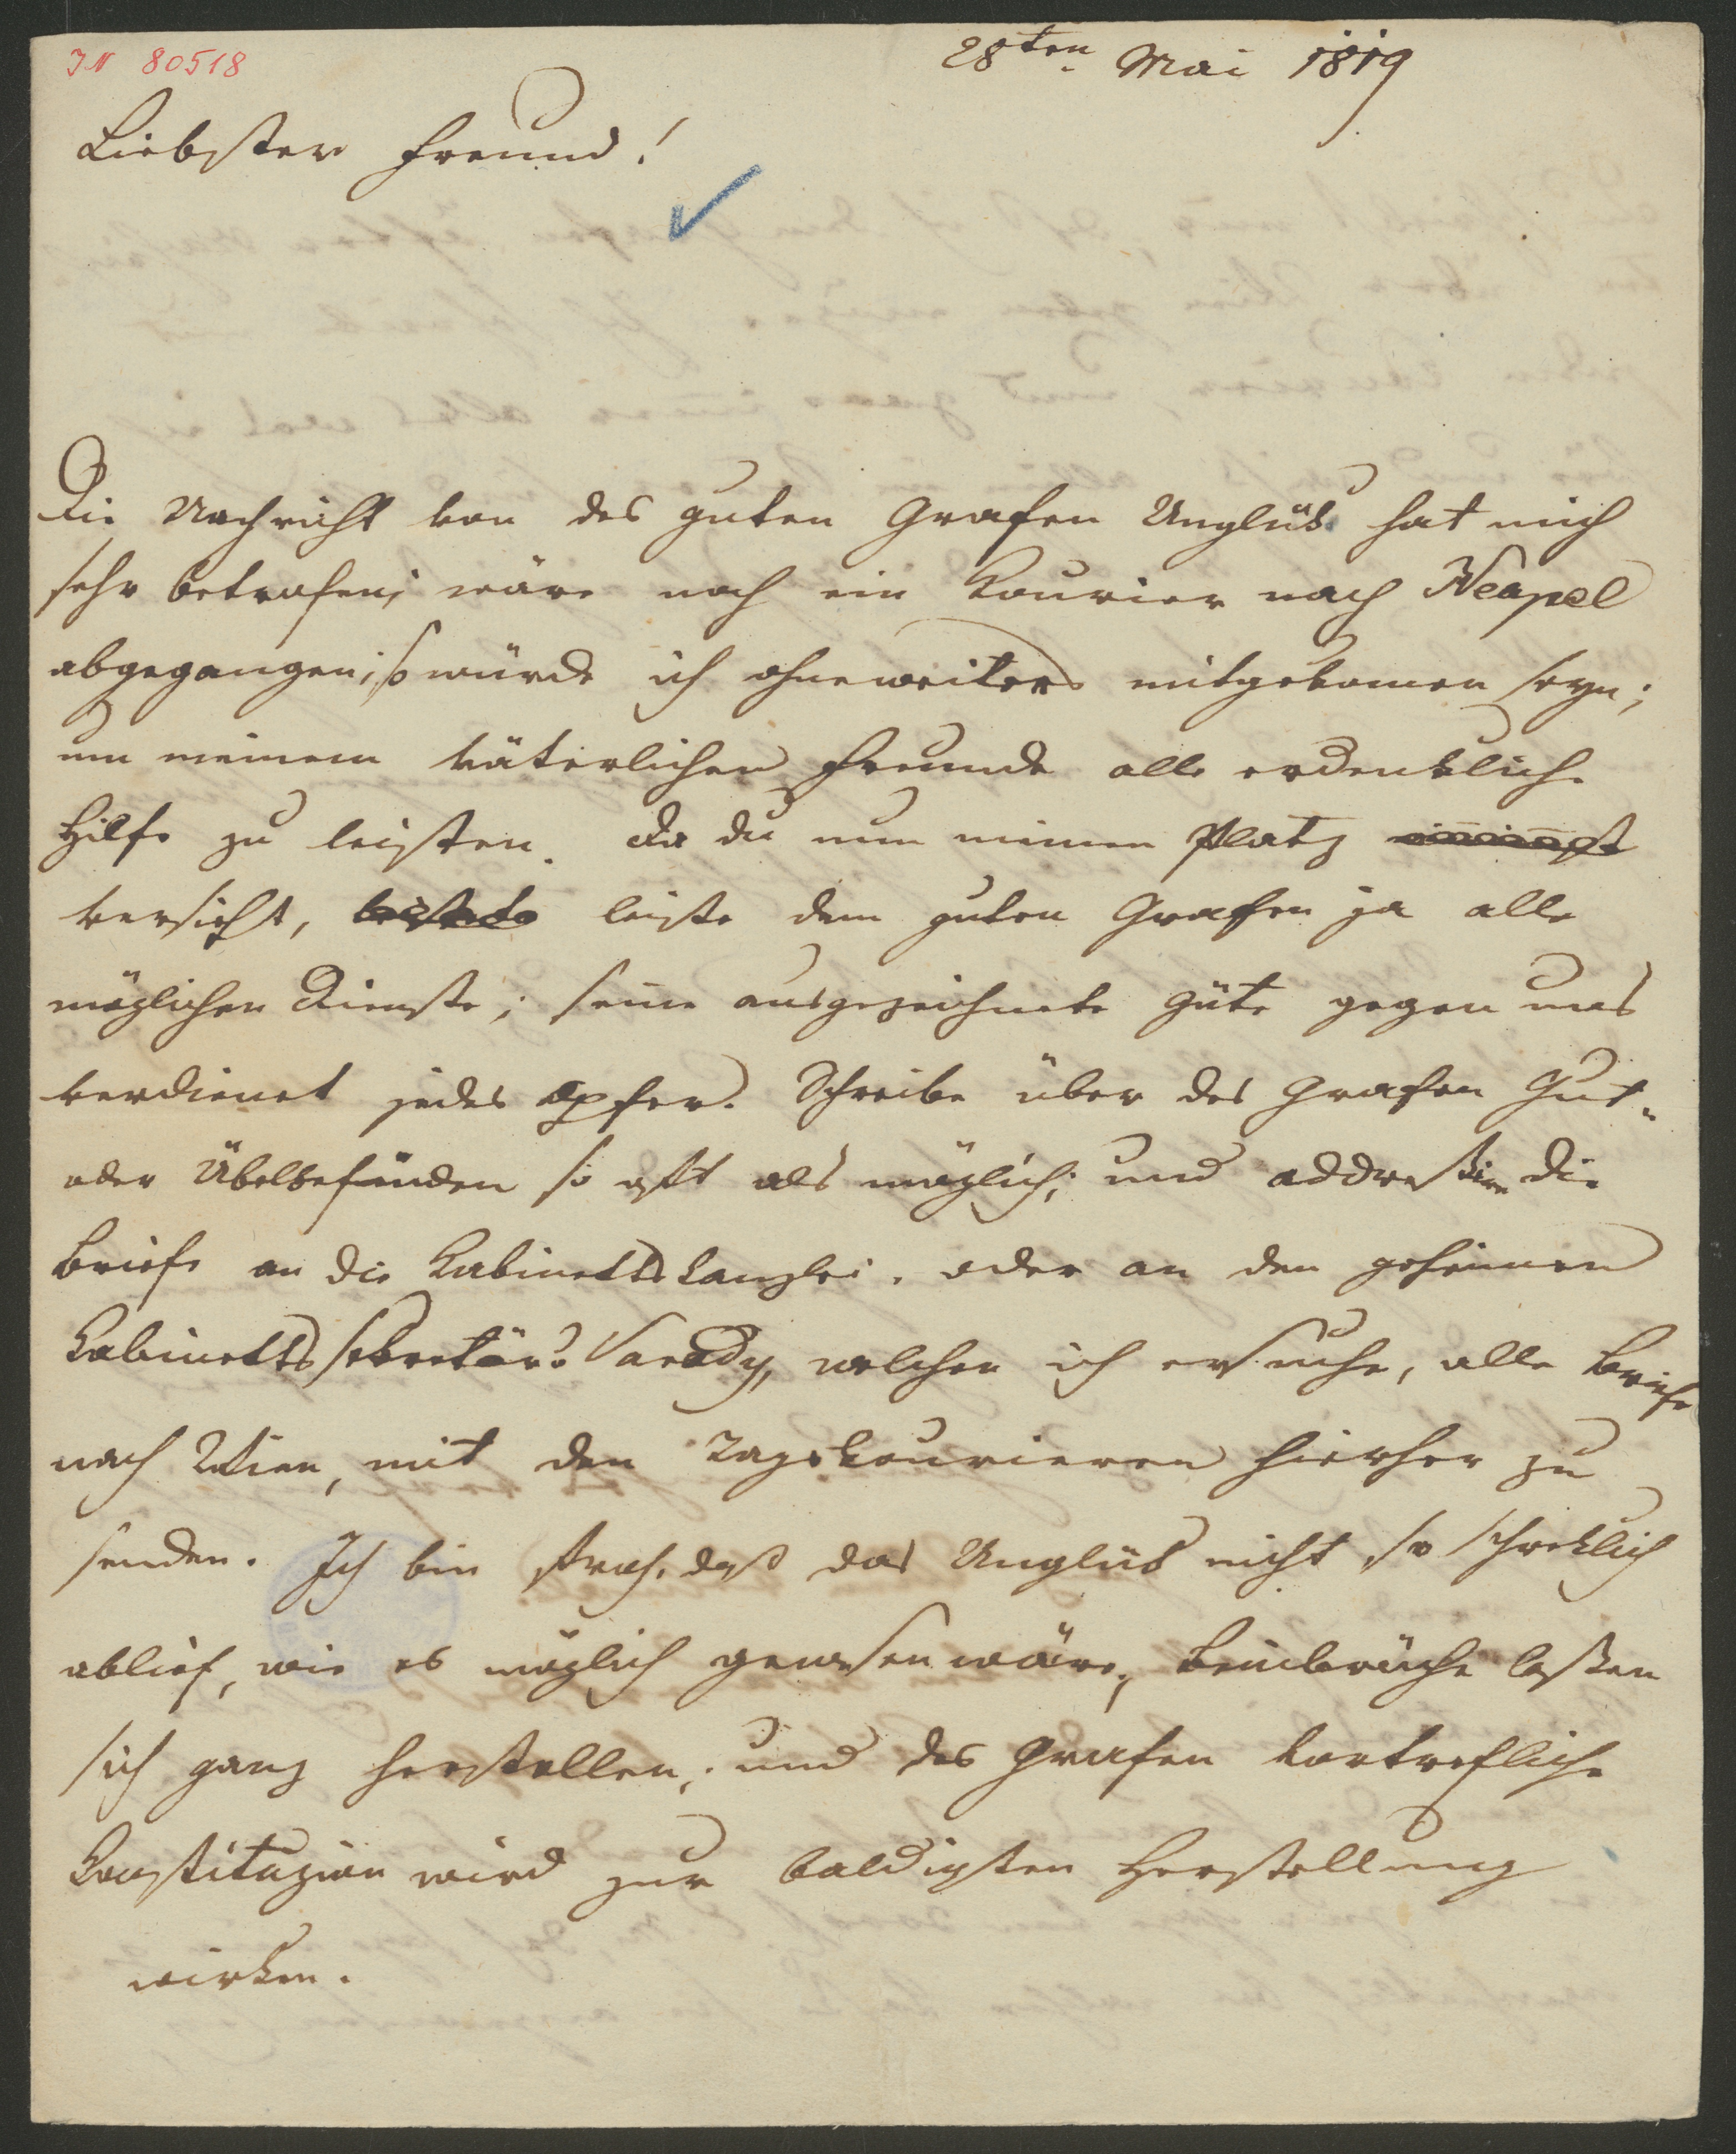 IN 80518
28ten Mai 1819
Liebster Freund!
Die Nachricht von des guten Grafen Unglük hat mich
sehr betrofen; wäre noch ein Kourier nach Neapel
abgegangen; so würde ich ohneweiters mitgekomen seyn;
um meinem väterlichen Freunde alle erdenkliche
Hilfe zu leisten. Da du nun meinen Platz einnimst
versiehst, leiste dem guten Grafen ja alle
möglichen Dienste; seine ausgezeichnete Güte gegen uns
verdienet jedes Opfer. Schreibe über des Grafen Gut-
oder Übelbefinden so oft als möglich; und addressire die
Briefe an die Kabinettskanzlei, oder an den geheimen
Kabinettssekretär Varady, welchen ich ersuche, alle Briefe
nach Wien, mit den Tagskourieren hierher zu
senden. Ich bin froh, daß das Unglük nicht so schreklich
ablief, wie es möglich gewesen wäre; Beinbrüche laßen
sich ganz herstellen; und des Grafen vortrefliche
Konstituzion wird zur baldigsten Herstellung
wirken.